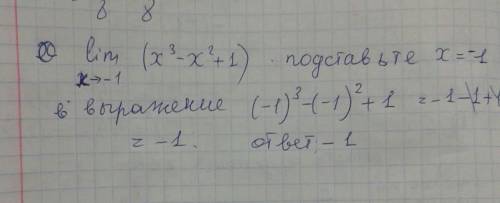 8 8
lim (x³-x²+1) подставьте x=-1
x→-1
в выражение (-1)³-(-1)²+1 =-1-1+1
= -1. ответ -1